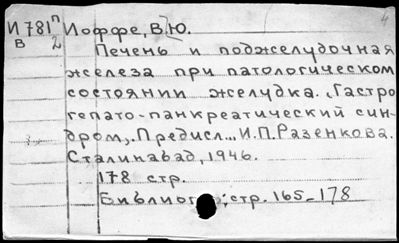 4
И 781п Иоффе, В.Ю.
В 2 Печень и поджелудочная
железа при патологическом
состоянии желудка. "Гастро
гепато-панкреатический син-
дром". Предисл... И.П. Разенкова.
Сталинабад, 1946.
178 стр.
Библиог ; стр. 165-178